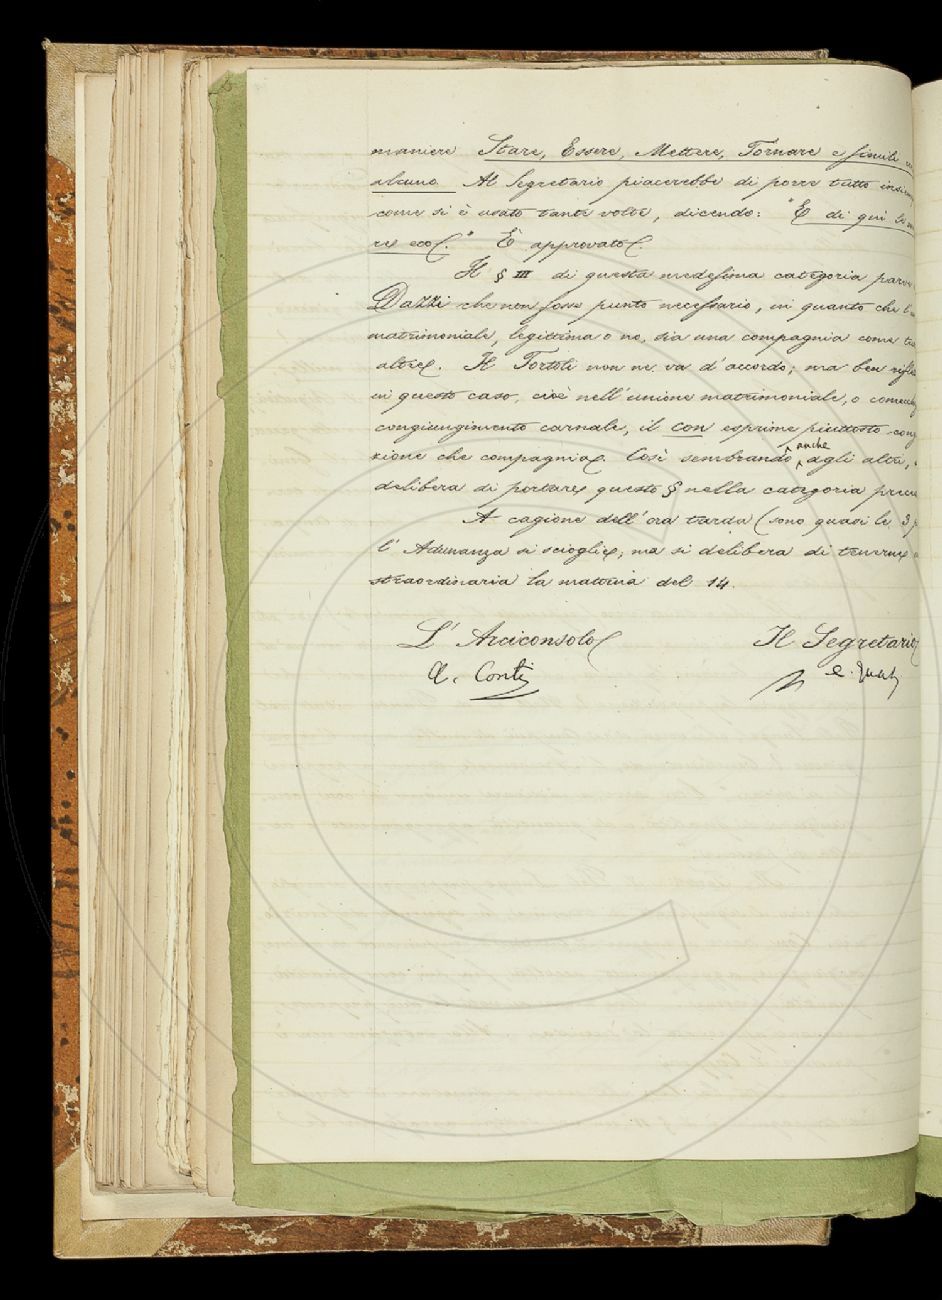 maniere Stare, Essere, Mettere, Tornare e simili
alcuno. Al Segretario piacerebbe di porre tutto
come si è usato tante volte, dicendo: "E di qui le
re ecc." È approvato.
Il § III di questa medesima categoria parve
Dazzi che non fosse punto necessario, in quanto che
matrimoniale, legittima o no, sia una compagnia come
altre. Il Tortoli non ne va d'accordo; ma ben
in questo caso, cioè nell'unione matrimoniale, o
congiungimento carnale, il con esprime piuttosto cong
zione che compagnia. Così sembrando anche agli altri,
delibera di portare questo § nella categoria
A cagione dell'ora tarda (sono quasi le 3
l'Adunanza si scioglie; ma si delibera di tenerne
straordinaria la mattina del 14.
L'Arciconsolo Il Segretario
A. Conti